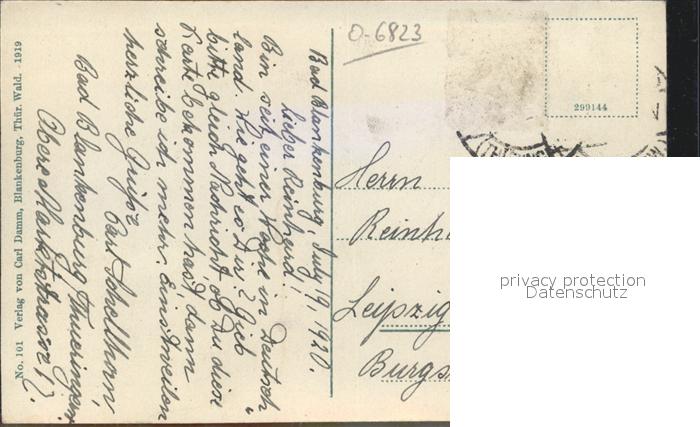 Bad Blankenburg, July 9, 1920.
Lieber Reinhard!
Bin seit einer Woche in Deutsch„
land. Wie geht es Dir? Gieb
bitte gleich Nachricht, ob Du diese
Karte bekommen hast, dann
schreibe ich mehr. Einstweilen
herzliche Grüße
Carl Schellhorn,
Bad Blankenburg Thueringen
Obere Marktstrasse 1).
No. 101 Verlag von Carl Damm, Blankenburg, Thür. Wald. 1919
O-6823
299144
Herrn
Leipzig
privacy protection
Datenschutz